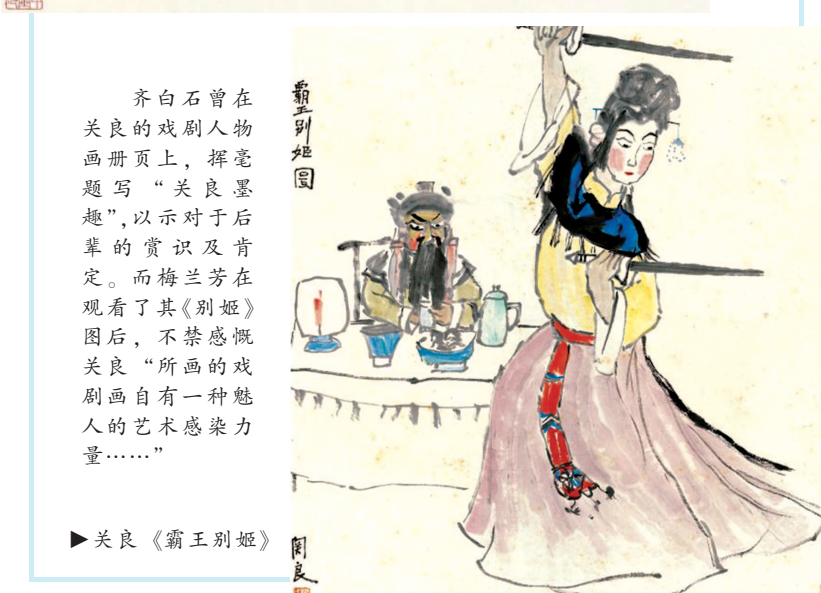 齐白石曾在
关良的戏剧人物
画册页上，挥毫
题写“关良墨
趣”，以示对于后
辈的赏识及肯
定。而梅兰芳在
观看了其《别姬》
图后，不禁感慨
关良“所画的戏
剧画自有一种魅
人的艺术感染力
量……”
▶关良《霸王别姬》
霸王别姬圖
関良